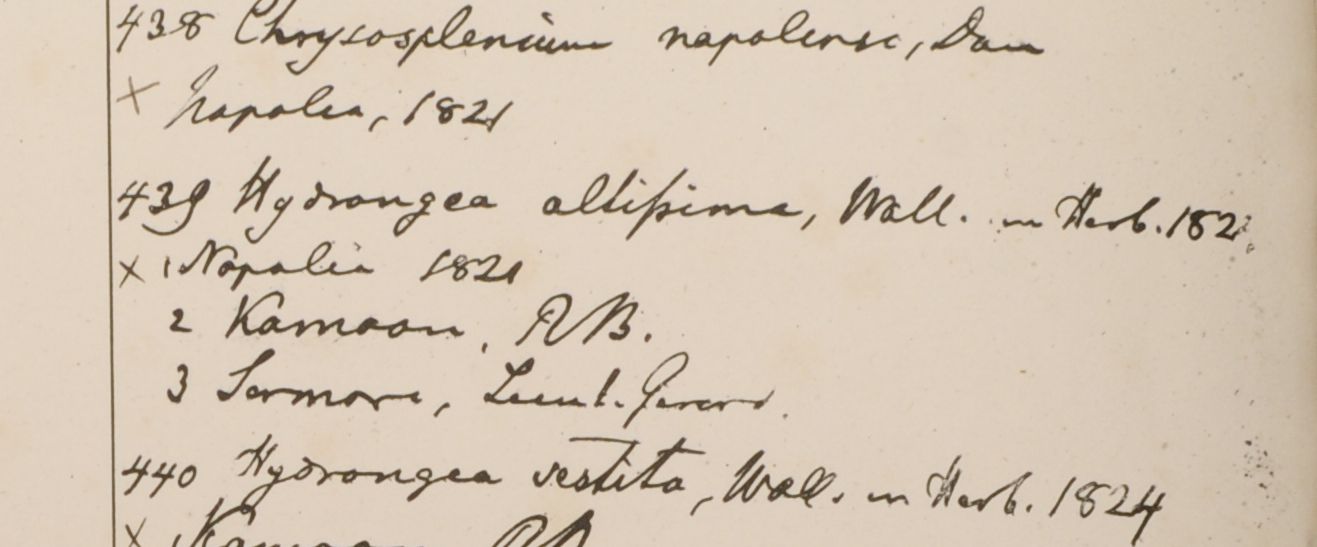 438 Chrysosplenium napalense, Don
× Napalia, 1821
439 Hydrangea altissima, Wall. in Herb. 182
× 1 Napalia 1821
2 Kamaon, RB.
3 Sermore, Lieut. Gerard.
440 Hydrangea vestita, Wall. in Herb. 1824
× Kamaon RB